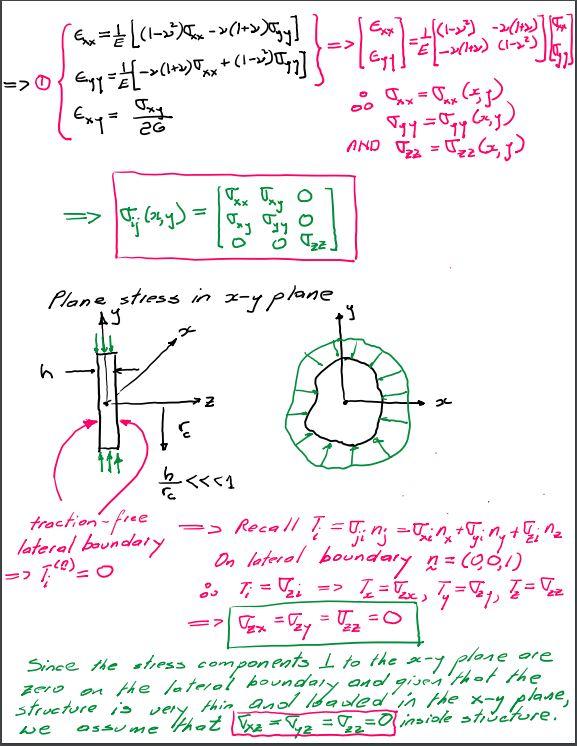 => ① { ϵxx = 1/E [(1-ν²)σxx - ν(1+ν)σyy]
ϵyy = 1/E [-ν(1+ν)σxx + (1-ν²)σyy]
ϵxy = σxy / 2G
} => [ϵxx ϵyy] = 1/E [(1-ν²) -ν(1+ν) -ν(1+ν) (1-ν²)] [σxx σyy]
∴ σxx = σxx(x,y)
σyy = σyy(x,y)
AND σzz = σzz(x,y)
=> σij(x,y) = [σxx σxy 0
σxy σyy 0
0 0 σzz]
Plane stress in x-y plane
y
x
h
z
rc
h/rc <<<1
y
x
traction-free
lateral boundary
=> Ti(n) = 0
=> Recall Ti = σji nj = σxi nx + σyi ny + σzi nz
On lateral boundary n = (0,0,1)
∴ Ti = σzi => Tx = σzx, Ty = σzy, Tz = σzz
=> σzx = σzy = σzz = 0
Since the stress components ⊥ to the x-y plane are
zero on the lateral boundary and given that the
structure is very thin and loaded in the x-y plane,
we assume that σxz = σyz = σzz = 0 inside structure.